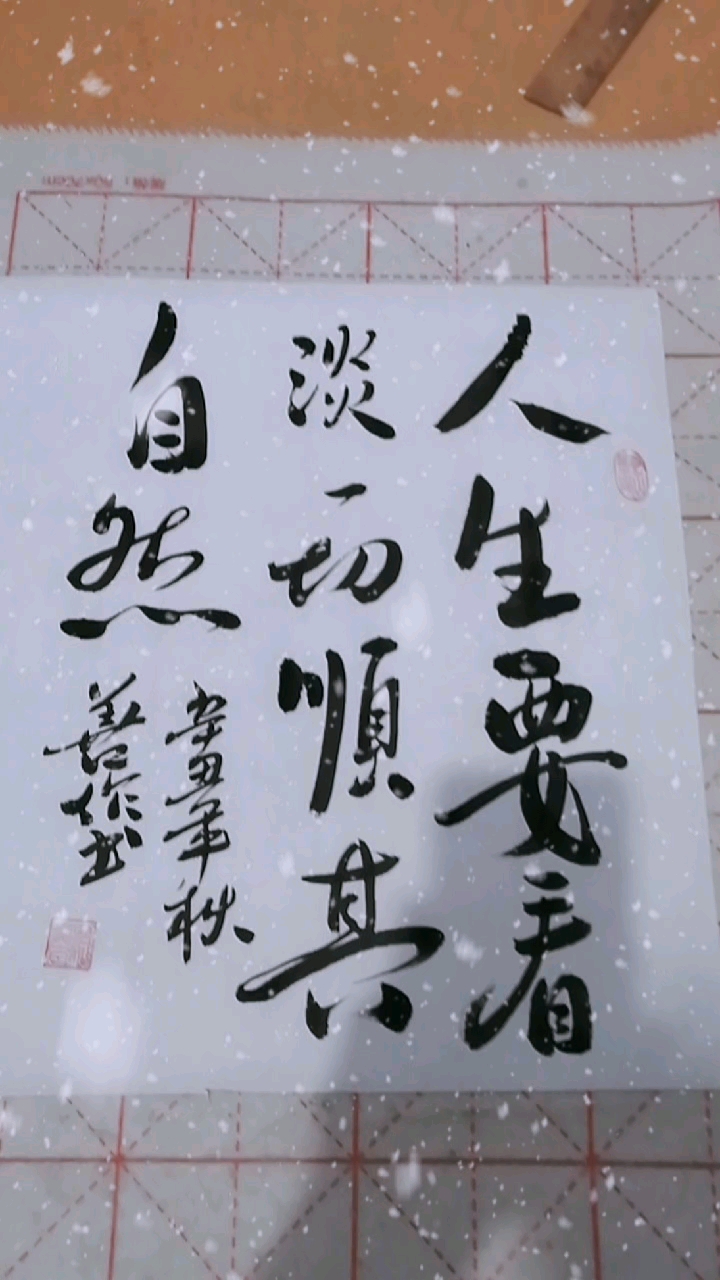 人生要看
淡一切順其
自然
辛丑年秋
善作书